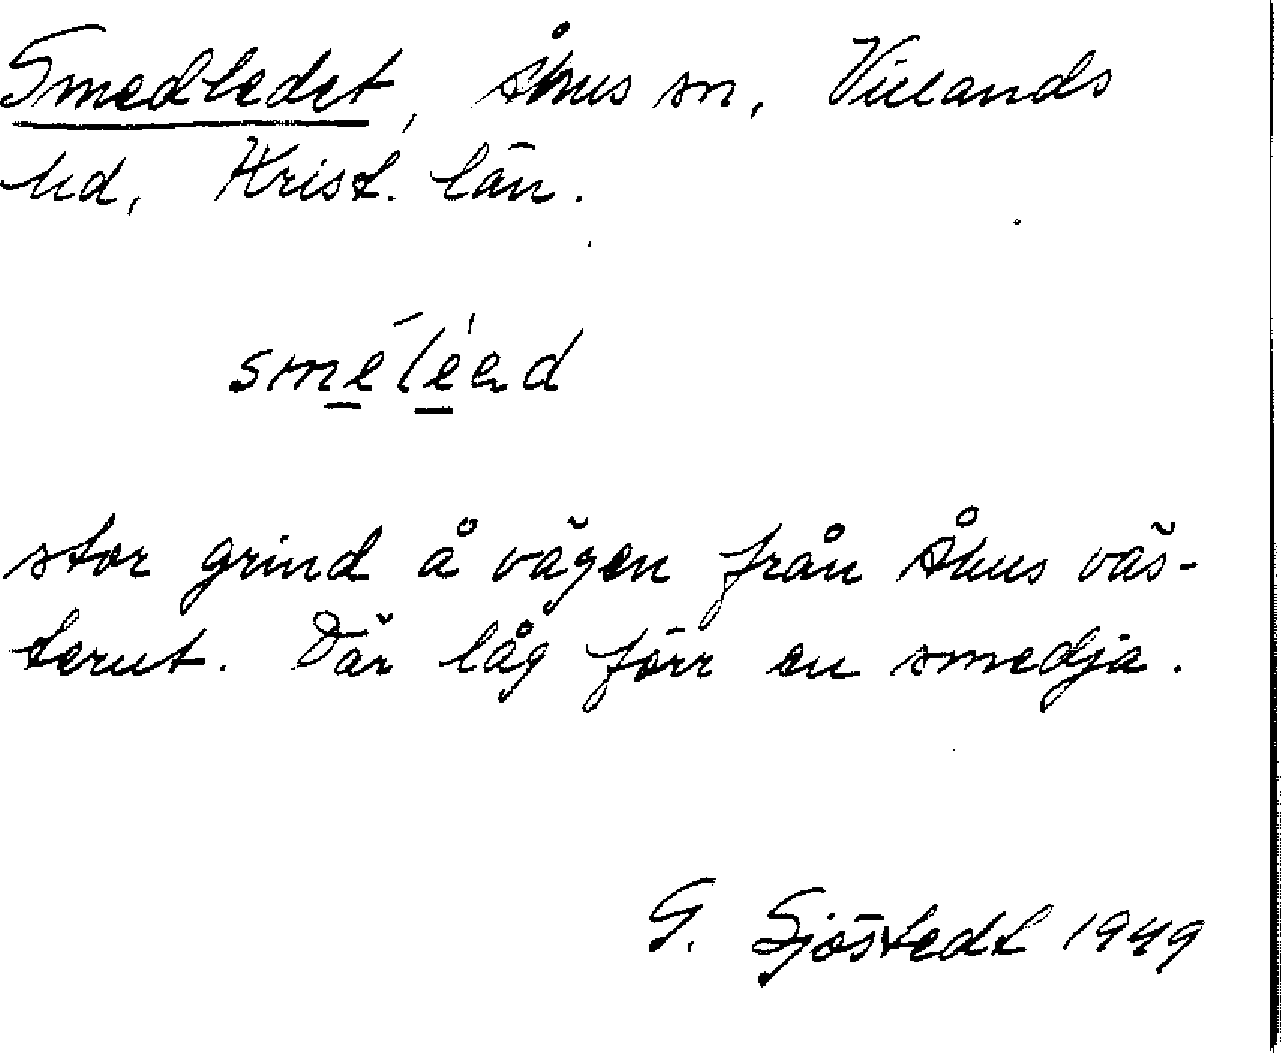 Smedledet, Åhus sn, Villands
hd, Krist. län.
smeleed
stor grind å vägen från Åhus väs-
terut. Där låg förr en smedja.
G. Sjöstedt 1949